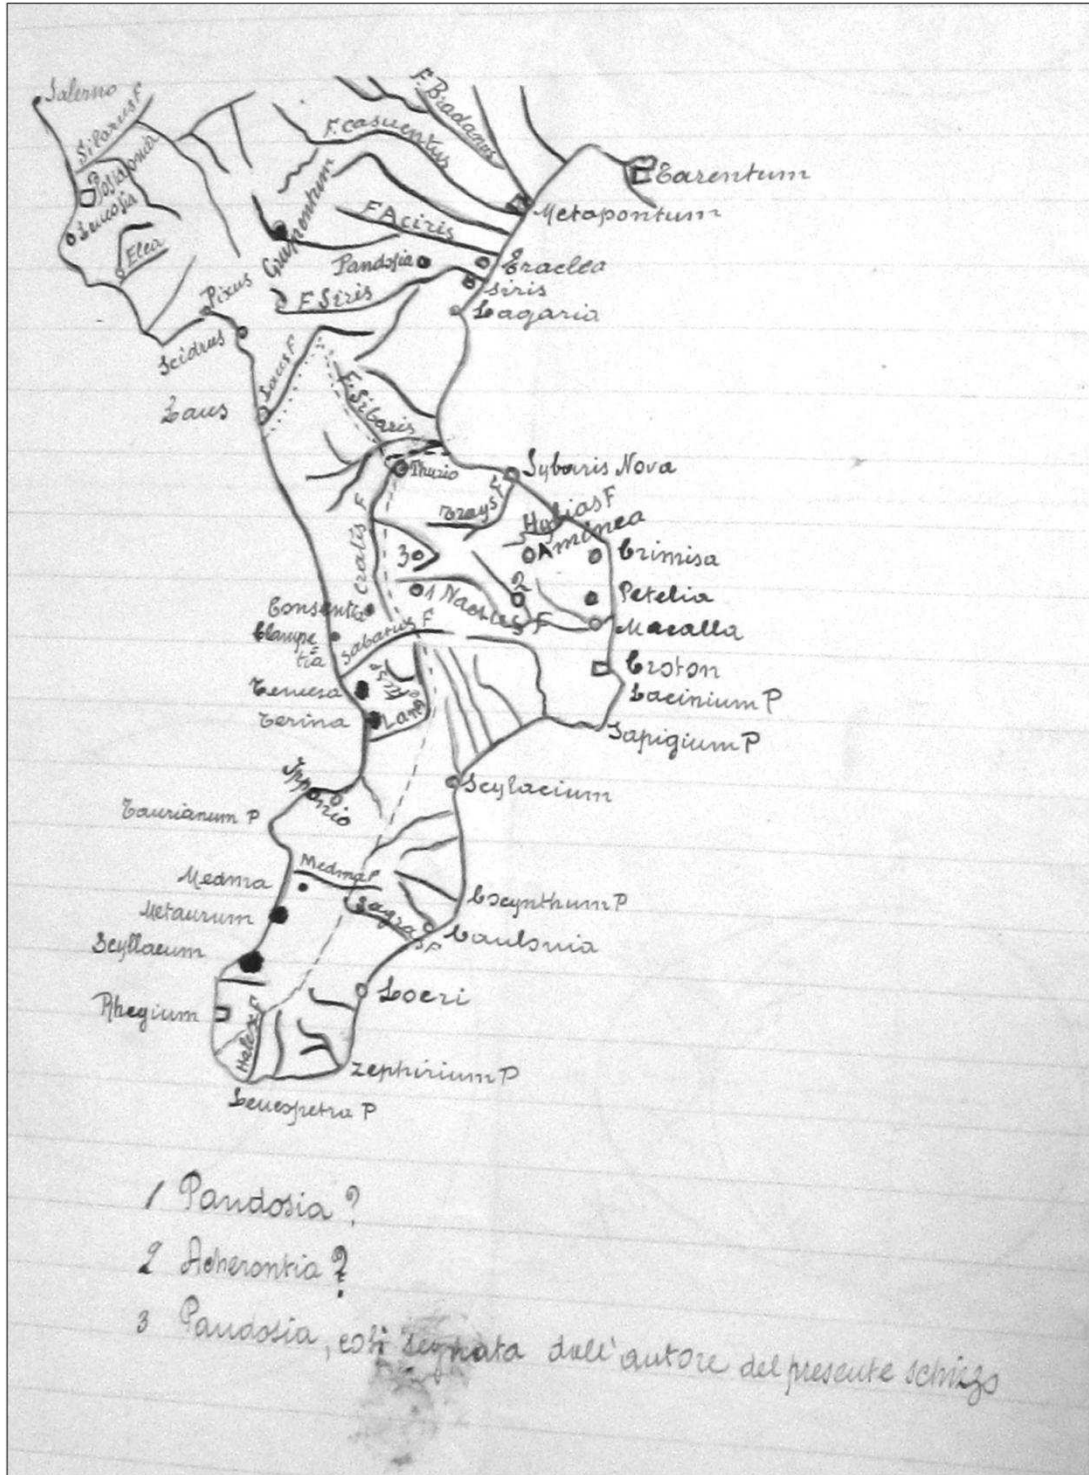 Salerno
Silarus F
Posidonia
Leucosia
Elea
Pixus
Scidrus
Laus
Laus F
Grumentum
F. casuentus
F. Bradanus
F Aciris
Pandosia
F. Siris
Tarentum
Metapontum
Eraclea
Siris
Lagaria
F. Sibaris
Thurio
Sybaris Nova
Trays F
Hylias F
Aminea
Crimisa
Cratis F
3
1
2
Naetus F
Petelia
Macalla
Consentia
Clampe
tia
Sabatus F
Croton
Lacinium P
Iapigium P
Temesa
Terina
Ipponio
Scylacium
Taurianum P
Medma
Medma F
Metaurum
Sagras F
Cocynthum P
Caulonia
Scyllaeum
Locri
Rhegium
Halex F
Zephirium P
Leucopetra P
1 Pandosia?
2 Acherontia?
3 Pandosia, così segnata dall'autore del presente schizzo